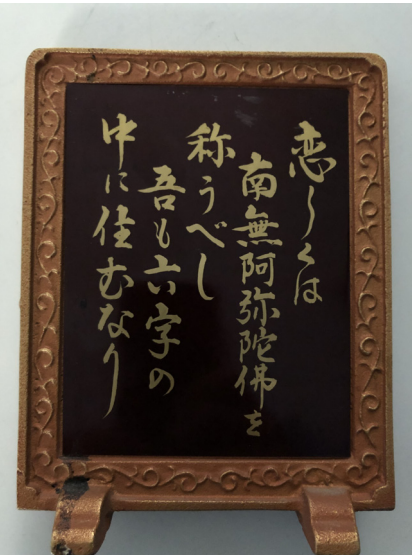 恋しくは
南無阿弥陀佛を
称うべし
吾も六字の
中に住むなり